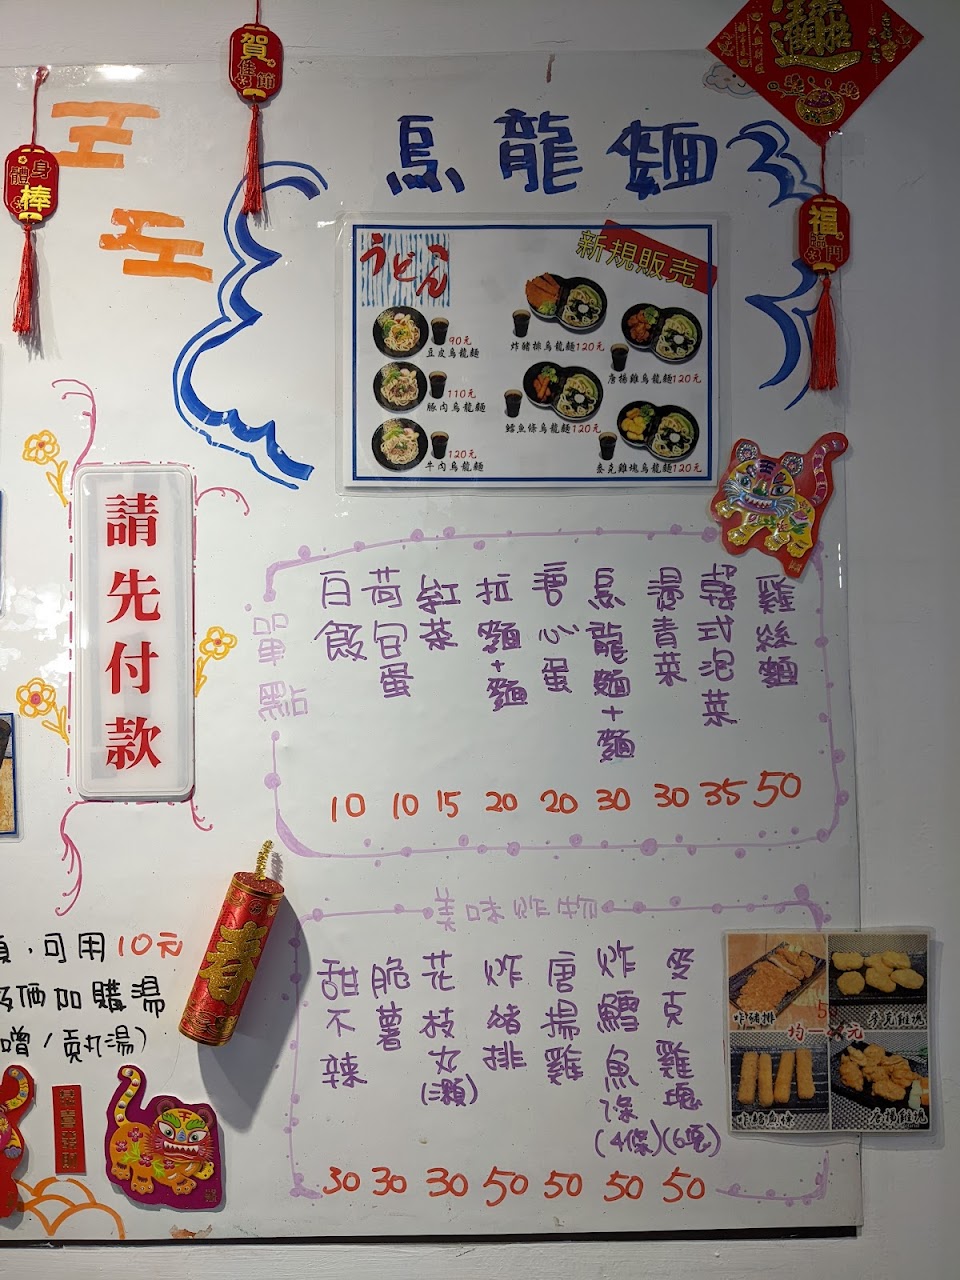 賀
佳節
身體
棒
福
臨門
烏龍麵
うどん
新規販売
90元
豆皮烏龍麵
110元
豚肉烏龍麵
120元
牛肉烏龍麵
炸豬排烏龍麵120元
唐揚雞烏龍麵120元
鱈魚條烏龍麵120元
麥克雞塊烏龍麵120元
請先付款
單點
白飯 10
荷包蛋 10
紅茶 15
拉麵+麵 20
唐心蛋 20
烏龍麵+麵 30
燙青菜 30
韓式泡菜 35
雞絲麵 50
美味炸物
甜不辣 30
脆薯 30
花枝丸(顆) 30
炸豬排 50
唐揚雞 50
炸鱈魚條(4條) 50
麥克雞塊(6塊) 50
炸豬排
麥克雞塊
均一
元
唐揚雞塊
春
,可用10元
価加購湯
噌/貢丸湯)